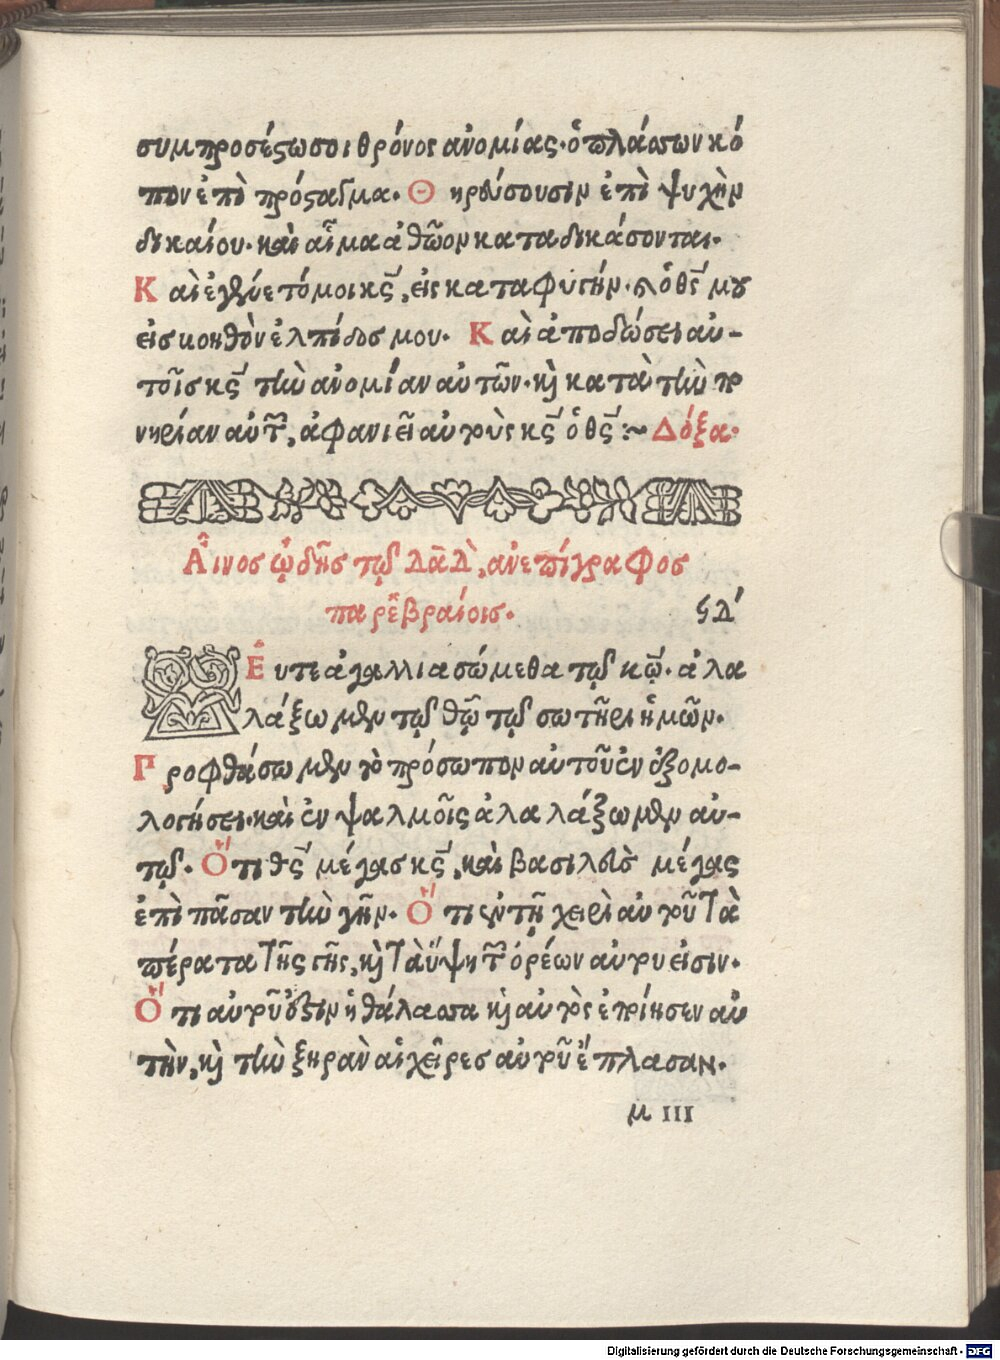 συμπροσέστω σοι θρόνος ἀνομίας· ὁ πλάσσων κό
πον ἐπὶ πρόσταγμα. Θηρεύσουσιν ἐπὶ ψυχὴν
δικαίου· καὶ αἷμα ἀθῶον καταδικάσονται.
Καὶ ἐγένετό μοι κς̄, εἰς καταφυγήν· καὶ ὁ θς̄ μου
εἰς βοηθὸν ἐλπίδος μου. Καὶ ἀποδώσει αὐ-
τοῖς κς̄ τὴν ἀνομίαν αὐτῶν· καὶ κατὰ τὴν πο
νηρίαν αὐτῶν, ἀφανιεῖ αὐτοὺς κς̄ ὁ θς̄ :~ Δόξα·
Αἶνος ᾠδῆς τῷ Δᾱδ, ἀνεπίγραφος
παρ' ἑβραίοις.
ϟδʹ
Δεῦτε ἀγαλλιασώμεθα τῷ κω̄· ἀλα
λάξωμεν τῷ θω̄ τῷ σωτῆρι ἡμῶν.
Προφθάσωμεν τὸ πρόσωπον αὐτοῦ ἐν ἐξομο-
λογήσει· καὶ ἐν ψαλμοῖς ἀλαλάξωμεν αὐ-
τῷ. Ὅτι θς̄ μέγας κς̄, καὶ βασιλεὺς μέγας
ἐπὶ πᾶσαν τὴν γῆν. Ὅτι ἐν τῇ χειρὶ αὐτοῦ τὰ
πέρατα τῆς γῆς, καὶ τὰ ὕψη τῶν ὀρέων αὐτοῦ εἰσιν.
Ὅτι αὐτοῦ ἐστιν ἡ θάλασσα καὶ αὐτὸς ἐποίησεν αὐ
τὴν, καὶ τὴν ξηρὰν αἱ χεῖρες αὐτοῦ ἔπλασαν.
μ III
Digitalisierung gefördert durch die Deutsche Forschungsgemeinschaft - DFG